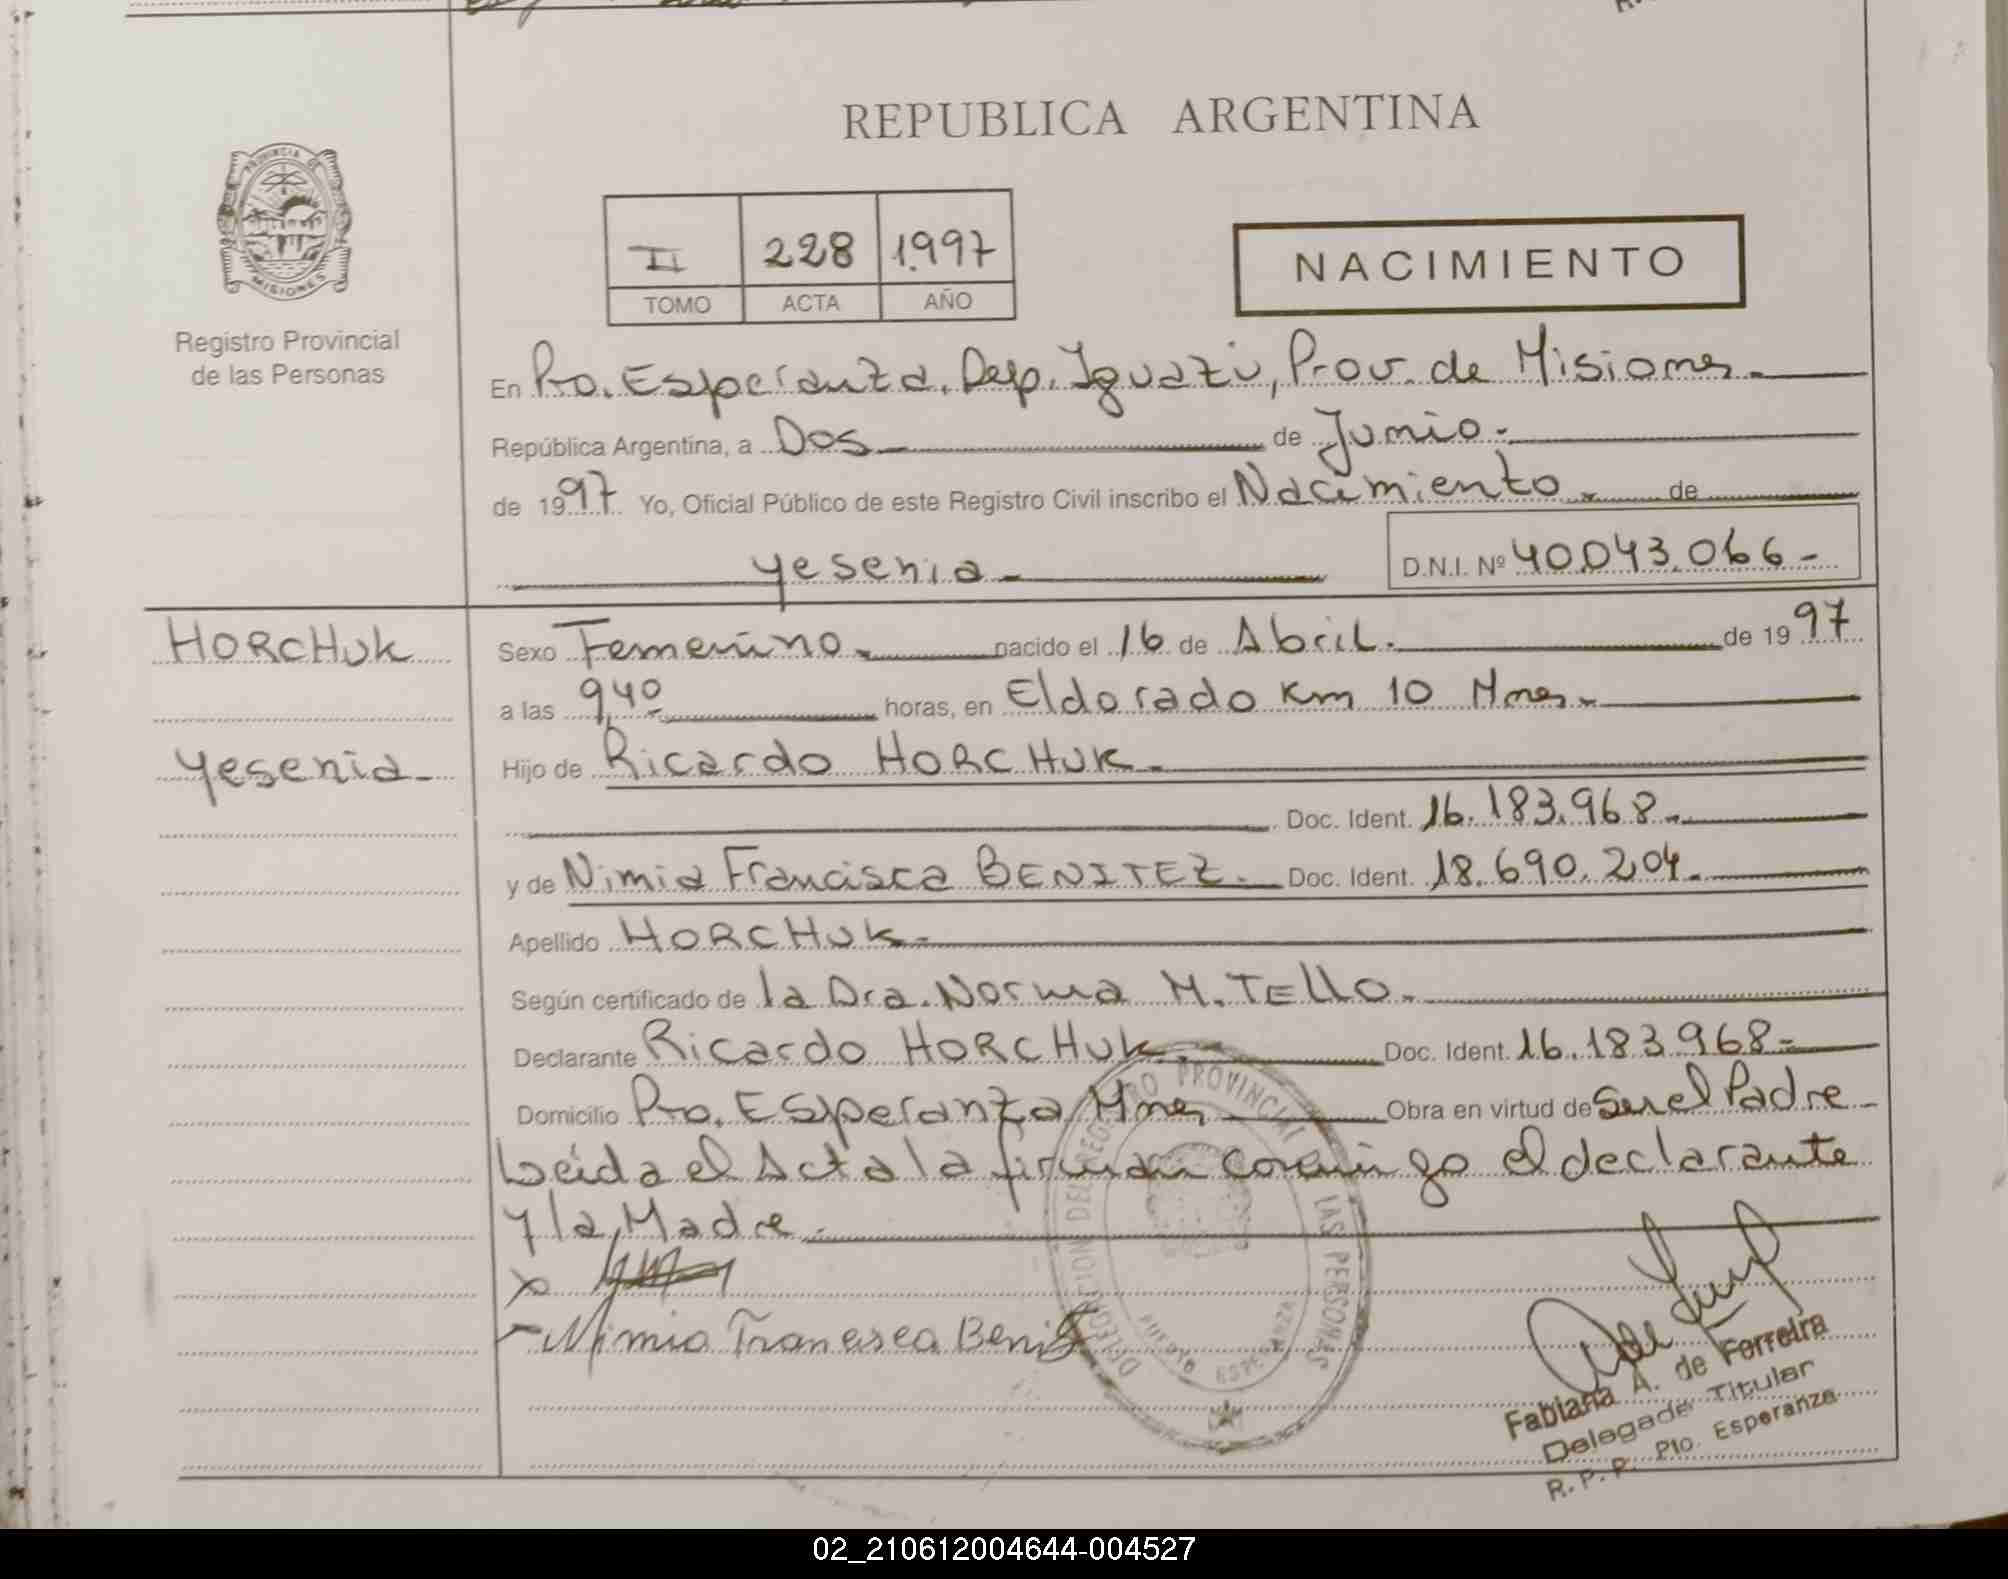 REPUBLICA ARGENTINA
PROVINCIA DE
MISIONES
Registro Provincial
de las Personas
II 228 1.997
TOMO ACTA AÑO
NACIMIENTO
En Pto. Esperanza, Dep. Iguazú, Prov. de Misiones.-
República Argentina, a Dos de Junio.-
de 1997 Yo, Oficial Público de este Registro Civil inscribo el Nacimiento de
Yesenia D.N.I. Nº 40.043.066-
HORCHUK
Yesenia
Sexo Femenino nacido el 16 de Abril. de 1997
a las 9,40 horas, en Eldorado Km 10 Mnes.
Hijo de Ricardo HORCHUK.
Doc. Ident. 16.183.968.
y de Nimia Francisca BENITEZ. Doc. Ident. 18.690.204.
Apellido HORCHUK.
Según certificado de la Dra. Norma M. TELLO.
Declarante RicaRdo HORCHUK. Doc. Ident. 16.183.968-
Domicilio Pto. Esperanza Mnes Obra en virtud de Ser el Padre
Leida el Acta la firman conmigo el declarante
y la Madre.
x
Nimia Francisca Benitez
DELEGACION DEL REGISTRO PROVINCIAL LAS PERSONAS
ESPERANZA
Fabiana A. de Ferreira
Delegada Titular
R. P. P. Pto. Esperanza
02_210612004644-004527